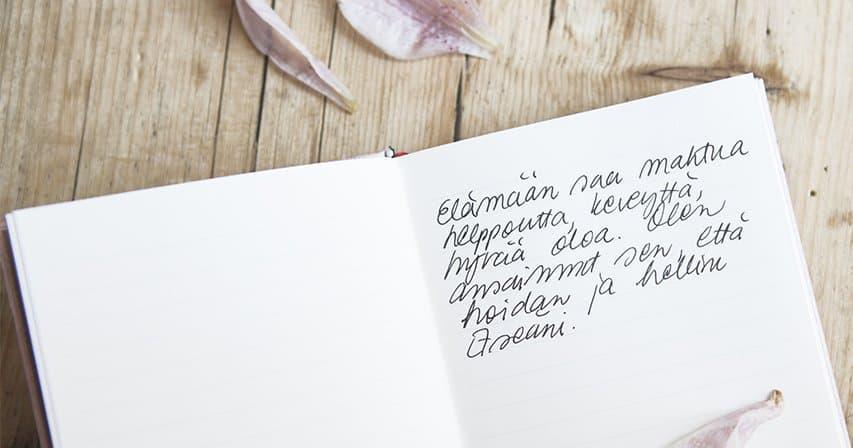 Elämään saa mahtua
helppoutta, keveyttä,
hyvää oloa. Olen
ansainnut sen, että
hoidan ja hellin
itseäni.